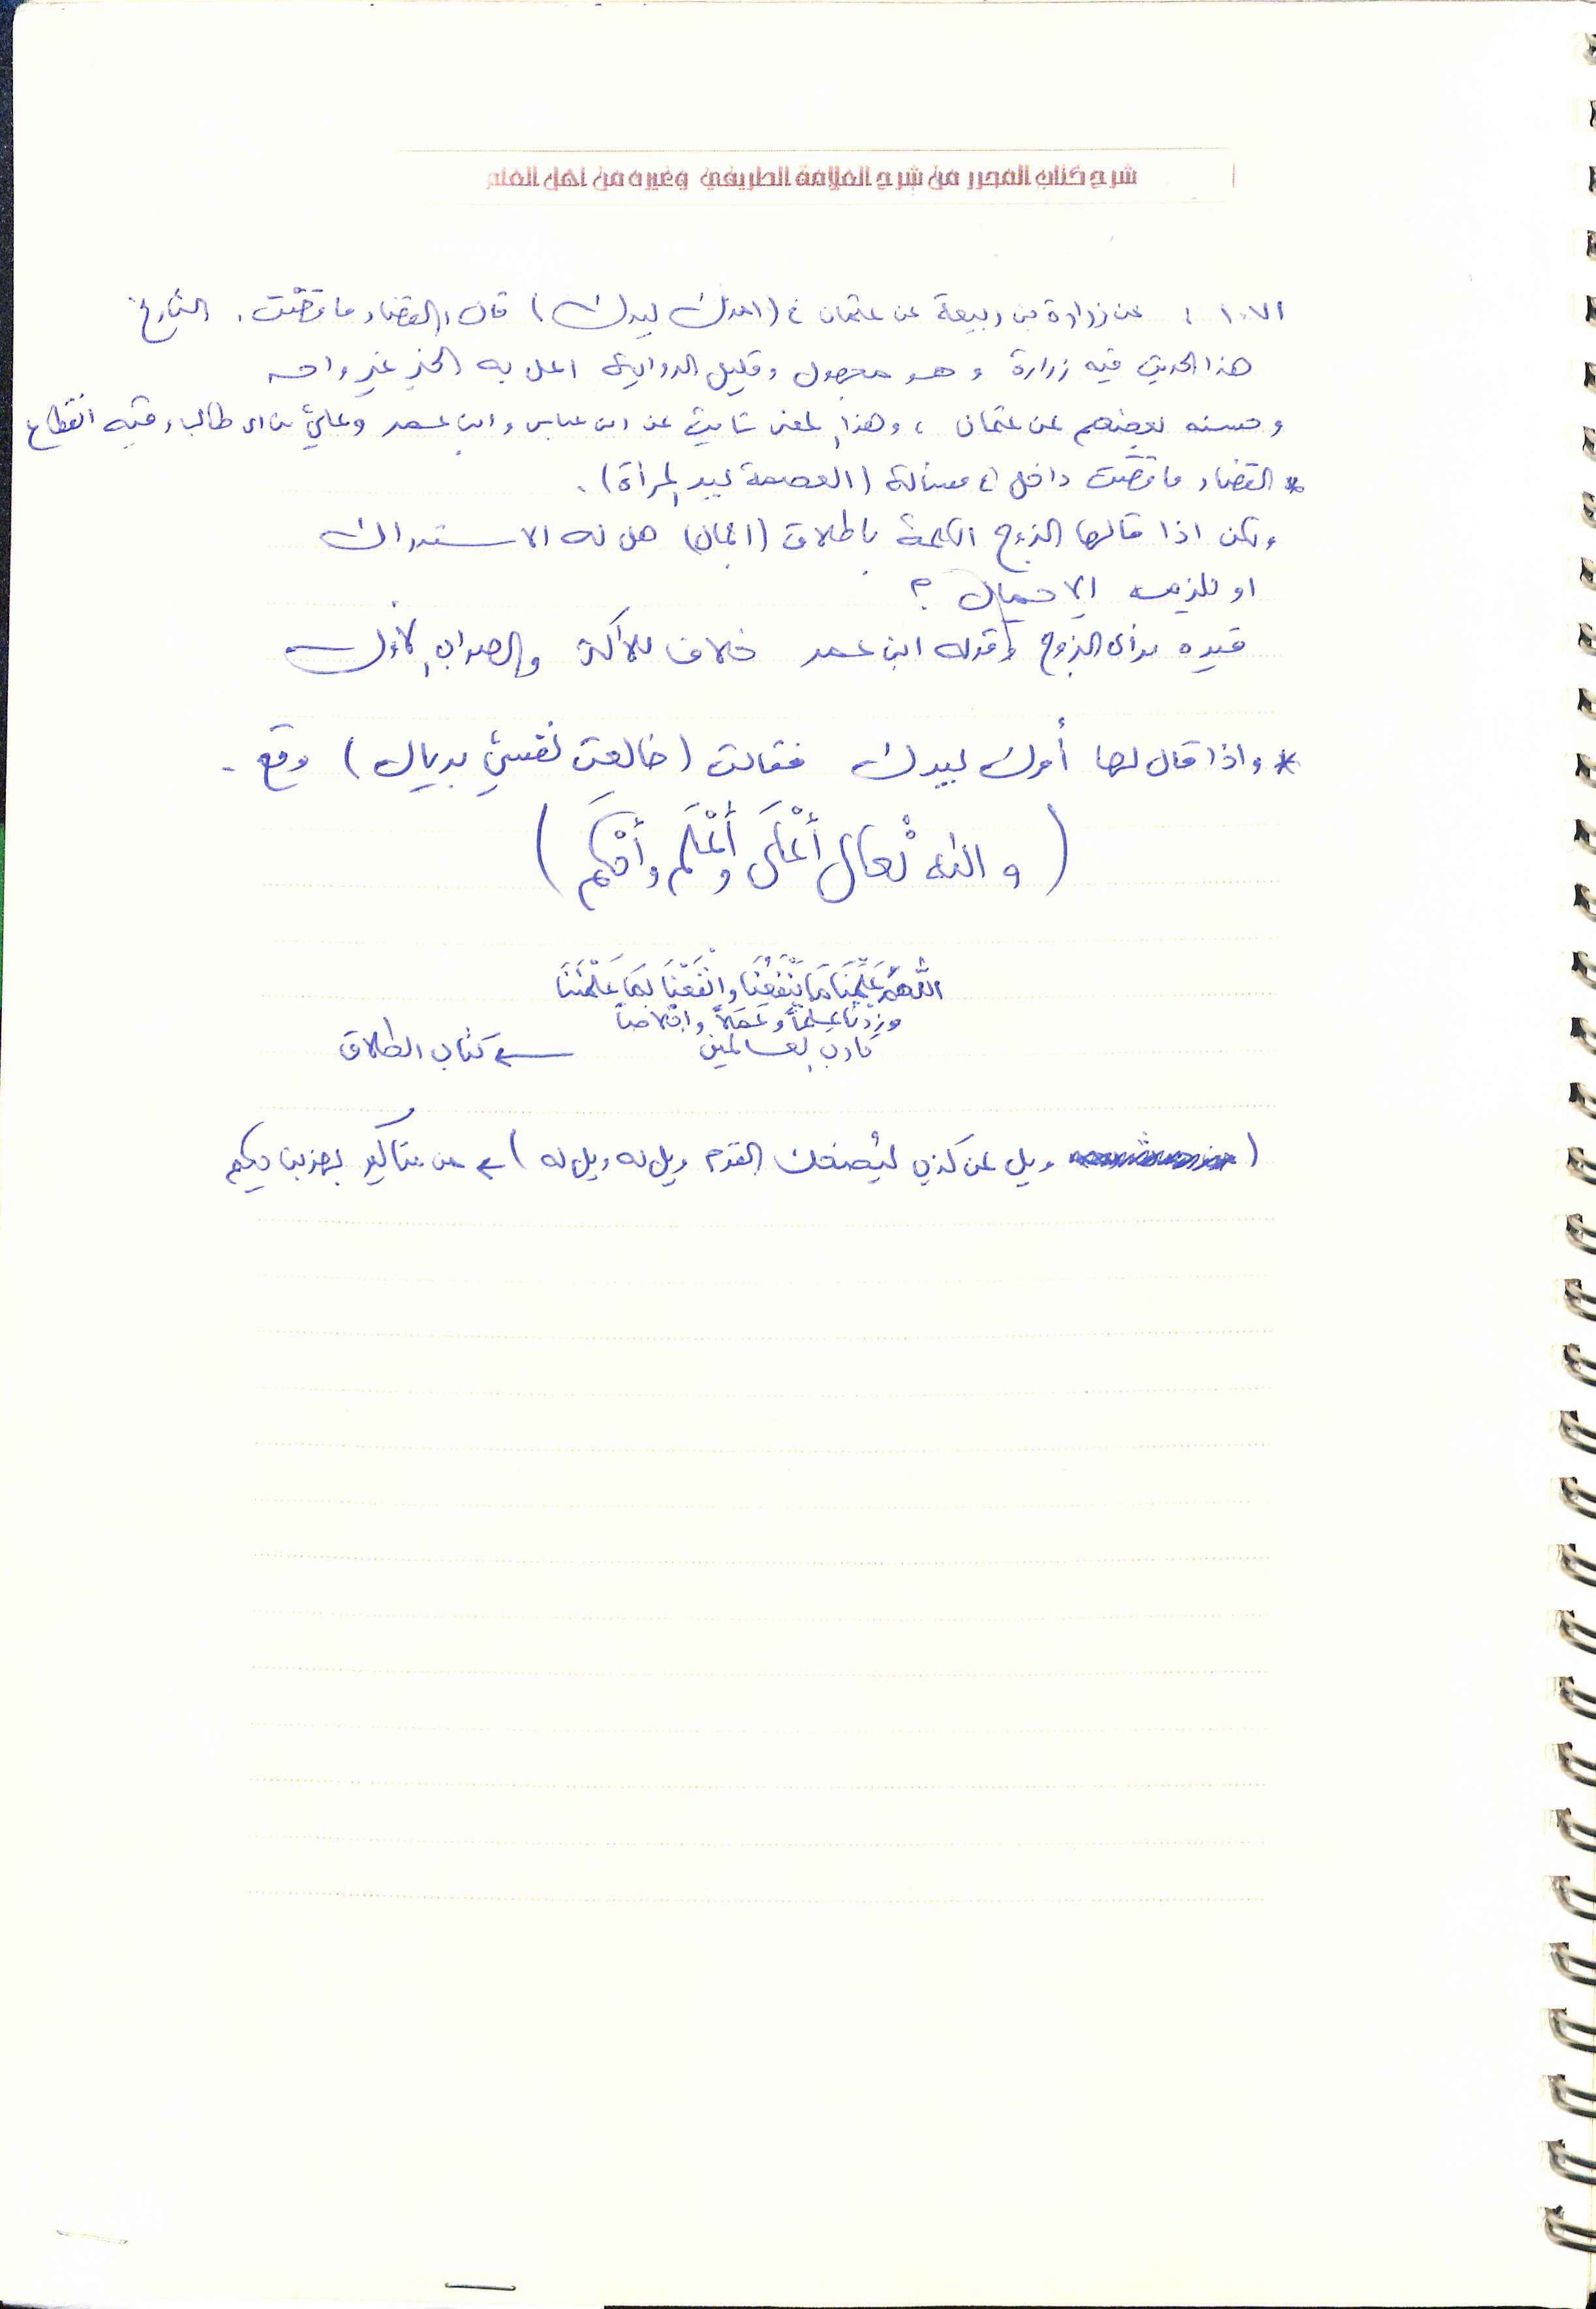 شرح كتاب المحرر من شرح العلامة الطريفي وغيره من اهل العلم
١٠٧١ : عن زرارة بن ربيعة عن عثمان في (امرك بيدك) قال: القضاء ما قضت. التاريخ
هذا الحديث فيه زرارة وهو مجهول وقليل الرواية اعل به الخبر غير واحد
وحسنه بعضهم عن عثمان ، وهذا المعنى ثابت عن ابن عباس وابن عمر وعلي بن ابي طالب وفيه انقطاع
* القضاء ما قضت داخل في مسألة (العصمة بيد المرأة).
ولكن اذا قالها الزوج الكلمة باطلاق هل له الاستدراك
او يلزمه الاحتمال ؟
قيده برأي الزوج وقوله ابن عمر خلاف للأكثر والصواب الأول
* واذا قال لها أمرك بيدك فقالت (خالعت نفسي بريال) وقع.
(والله تعالى أعلى وأعلم وأحكم)
اللهُمَّ عَلِّمْنَا مَا يَنْفَعُنَا وانْفَعْنَا بِمَا عَلَّمْتَنَا
وزِدْنَا عِلماً وعَمَلاً واخلاصاً
يا رب العالمين
كتاب الطلاق
(ويل لمن كذب ليُضحك القوم ويل له ويل له) من مناكير بهز بن حكيم